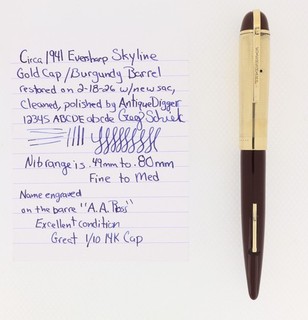 Circa 1941 Eversharp Skyline
Gold Cap/Burgundy Barrel
restored on 2-18-26 w/new sac,
Cleaned, polished by AntiqueDigger
12345 ABCDE abcde Greg
Nib range is .49mm to .80mm
Fine to Med
Name engraved
on the barre "A.A. Ross"
Excellent condition
Great 1/10 14K Cap